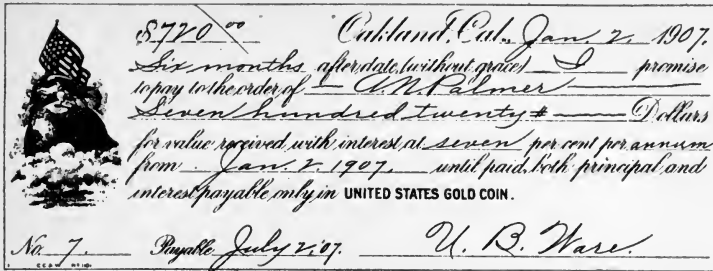 $720.00 Oakland, Cal., Jan. 2, 1907.
Six months after date (without grace) I promise
to pay to the order of A. N. Palmer
Seven hundred twenty # Dollars
for value received with interest at seven per cent per annum
from Jan. 2, 1907, until paid, both principal and
interest payable only in UNITED STATES GOLD COIN.
No. 7. Payable July 2, '07. U. B. Ware.